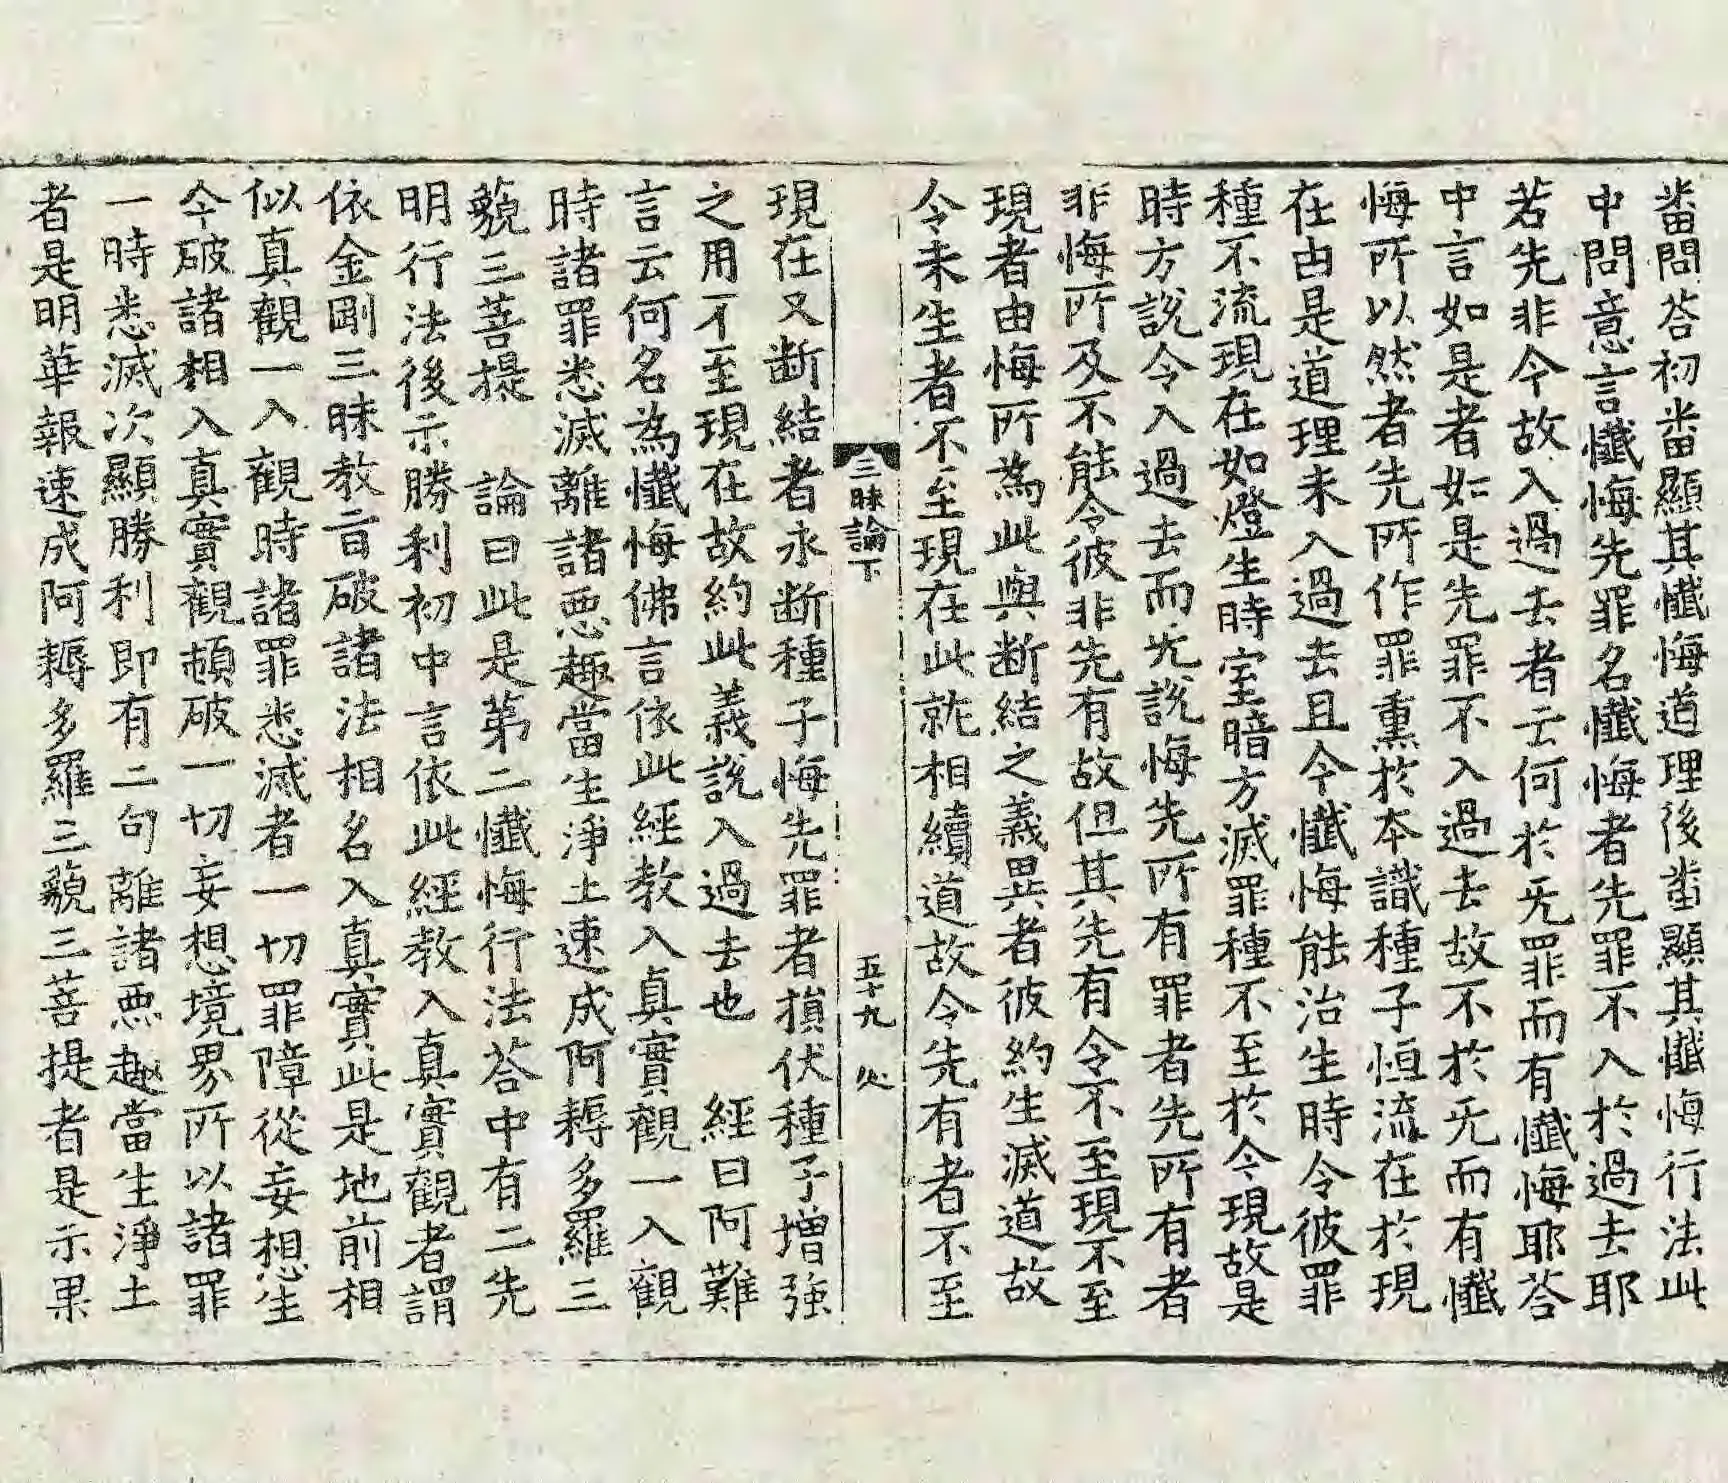 畨問荅初畨顯其懺悔道理後畨顯其懺悔行法此
中問意言懺悔先罪名懺悔者先罪不入於過去耶
若先非今故入過去者云何於旡罪而有懺悔耶荅
中言如是者如是先罪不入過去故不於旡而有懺
悔所以然者先所作罪熏於本識種子恒流在於現
在由是道理未入過去且今懺悔能治生時令彼罪
種不流現在如燈生時室暗方滅罪種不至於今現故是
時方說令入過去而旡說悔先所有罪者先所有者
非悔所及不能令彼非先有故但其先有令不至現不至
現者由悔所為此與断結之義異者彼約生滅道故
令未生者不至現在此就相續道故令先有者不至
三昧論下 五十九 火
現在又断結者永断種子悔先罪者損伏種子增強
之用不至現在故約此義說入過去也 經曰阿難
言云何名為懺悔佛言依此經教入真實觀一入觀
時諸罪悉滅離諸惡趣當生淨土速成阿耨多羅三
藐三菩提 論曰此是第二懺悔行法荅中有二先
明行法後示勝利初中言依此經教入真實觀者謂
依金剛三昧教旨破諸法相名入真實此是地前相
似真觀一入觀時諸罪悉滅者一切罪障從妄想生
今破諸相入真實觀頓破一切妄想境界所以諸罪
一時悉滅次顯勝利即有二句離諸惡趣當生淨土
者是明華報速成阿耨多羅三藐三菩提者是示果